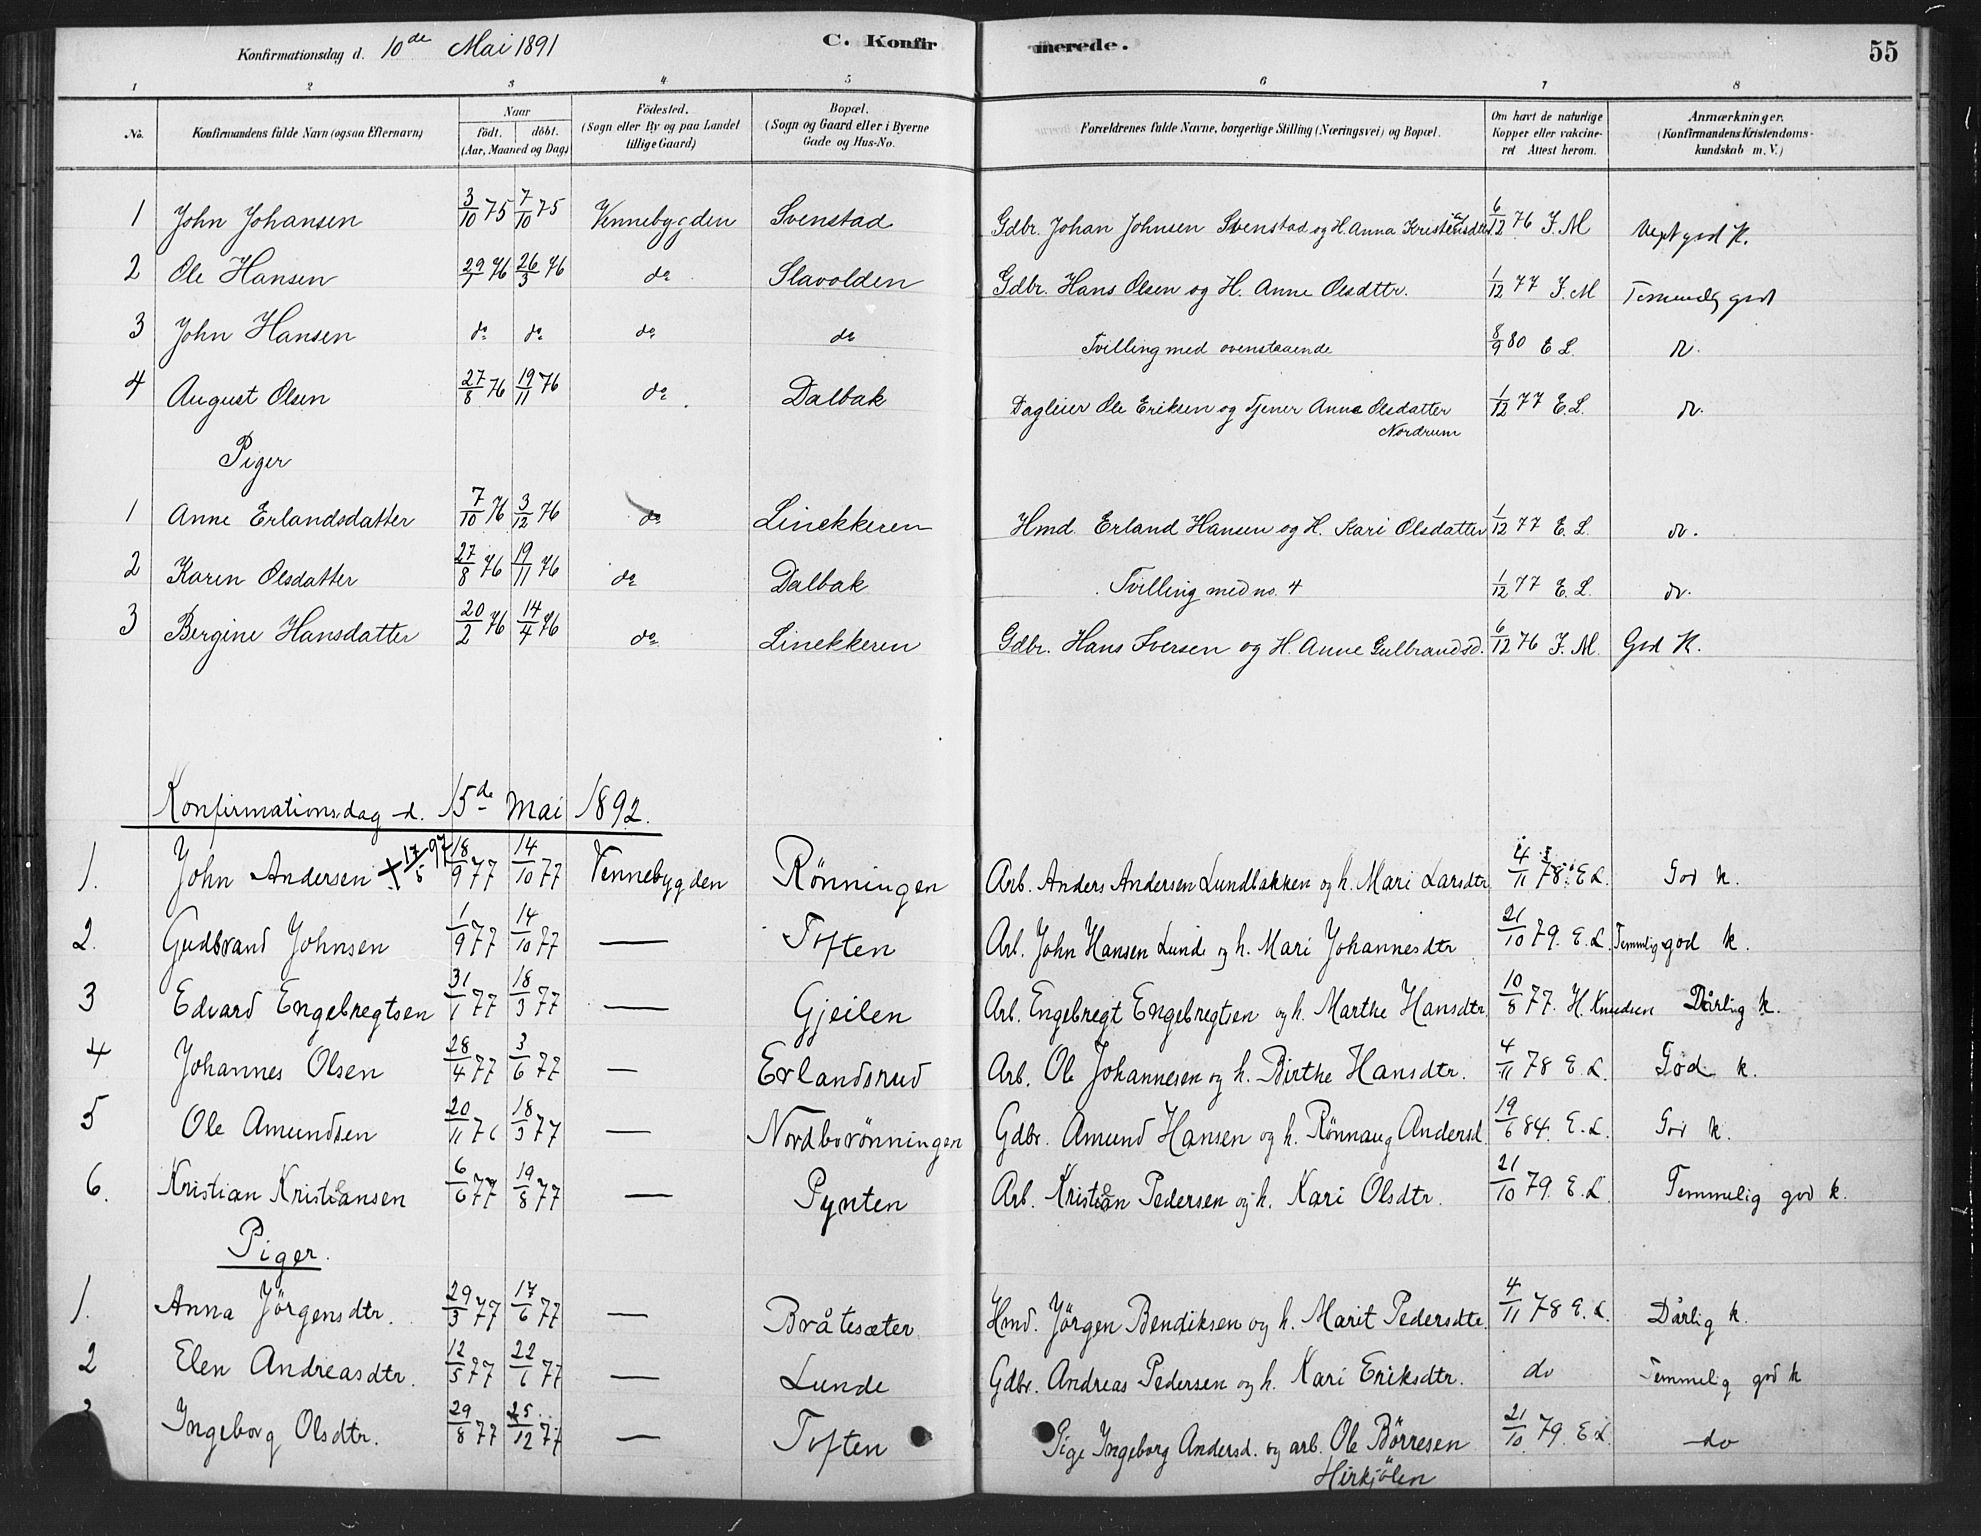 Konfirmationsdag d. 10de Mai 1891 C. Konfir merede. 55
1 2 3 4 5 6 7 8
No. Konfirmandens fulde Navn (ogsaa Efternavn) Naar födt. döbt. (Aar, Maaned og Dag) Födested. (Sogn eller By og paa Landet tillige Gaard) Bopæl. (Sogn og Gaard eller i Byerne Gade og Hus-No. Forældrenes fulde Navne, borgerlige Stilling (Næringsvei) og Bopæl. Om havt de naturlige Kopper eller vakcineret Attest herom. Anmærkninger. (Konfirmandens Kristendomskundskab m. V.)
1 John Johansen 3/10 75 7/10 75 Vennebygden Svenstad Gdbr. Johan Johnsen Svenstad og H. Anna Kristensdtr 6/12 76 J. M god K.
2 Ole Hansen 29/1 76 26/3 76 do Slavolden Gdbr. Hans Olsen og H. Anne Olsdttr. 1/12 77 J. M Temmelig god
3 John Hansen do do do do Tvilling med ovenstaaende 8/9 80 E L. do.
4 August Olsen 27/8 76 19/11 76 do Dalbak Dagleier Ole Eriksen og tjener Anne Olsdatter Nordrum 1/12 77 E. L. do.
Piger
1 Anne Erlandsdatter 7/10 76 3/12 76 do Linekkeren Hmd. Erland Hansen og H. Kari Olsdatter 1/12 77 E. L. do.
2 Karen Olsdatter 27/8 76 19/11 76 do Dalbak Tvilling med no. 4 1/12 77 E. L. do.
3 Bergine Hansdatter 20/2 76 14/4 76 do Linekkeren Gdbr. Hans Iversen og H. Anne Gulbrandsd. 6/12 76 J. M. God K.
Konfirmationsdag d. 15de Mai 1892.
1. John Andersen + 17/5 97 18/9 77 14/10 77 Vennebygden Rönningen Arb. Anders Andersen Lundbakken og h. Mari Larsdtr 4/11 78. E L. God k.
2. Gudbrand Johnsen 1/9 77 14/10 77 — Toften Arb. John Hansen Lund og h. Mari Johannesdtr 21/10 79. E. L. Temmlig god k.
3 Edvard Engebregtsen 31/1 77 18/3 77 — Gjeilen Arb. Engebregt Engebregtsen og h. Marthe Hansdtr. 10/8 77. H. Knudsen Dårlig k.
4 Johannes Olsen 28/4 77 3/6 77 — Erlandsrud Arb. Ole Johannesen og h. Birthe Hansdtr. 4/11 78 E. L. God k.
5 Ole Amundsen 20/11 76 18/3 77 — Nordborönningen Gdbr. Amund Hansen og h. Rönnaug Andersd. 19/6 84. E. L. God k.
6. Kristian Kristiansen 6/6 77 19/8 77 — Pynten Arb. Kristian Pedersen og h. Kari Olsdtr. 21/10 79. E. L. Temmelig god k.
Piger.
1. Anna Jörgensdtr. 29/3 77 17/6 77 — Bråtesæter Hmd. Jörgen Bendiksen og h. Marit Pedersdtr. 4/11 78 E. L. Dårlig k.
2 Elen Andreasdtr. 12/5 77 22/6 77 — Lunde Gdbr. Andreas Pedersen og h. Kari Eriksdtr. do Temmelig god k
Ingeborg Olsdtr. 29/8 77 25/12 77 — Toften Pige Ingeborg Andersd. og arb. Ole Börresen Hirkjölen 21/10 79. E L. do